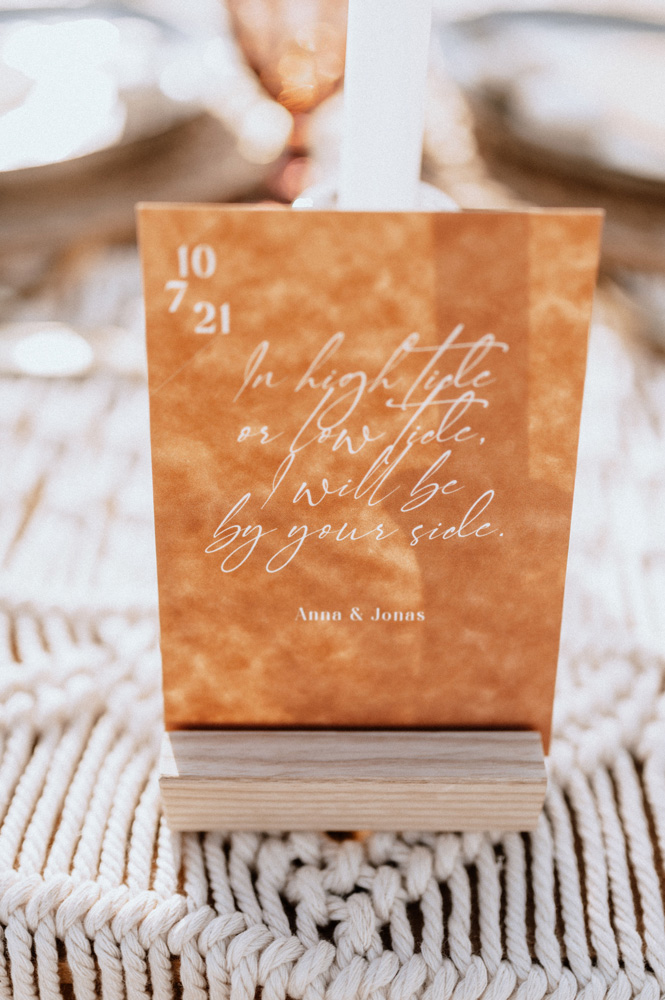 10
7
21
In high tide
or low tide,
I will be
by your side.
Anna & Jonas